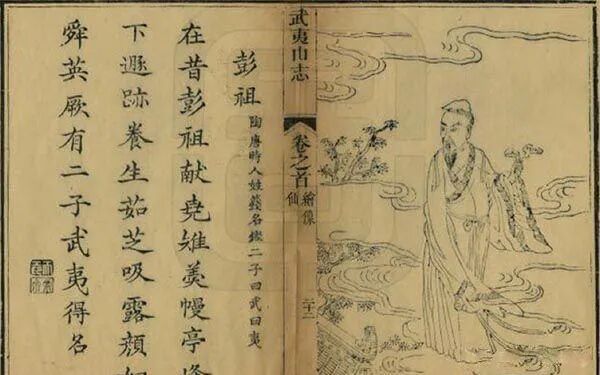 武夷山志
卷之首
繪像
仙
彭祖 陶唐時人姓籛名鏗二子曰武曰夷
在昔彭祖献堯雉羹幔亭峰
下遯跡養生茹芝吸露顏如
舜英厥有二子武夷得名